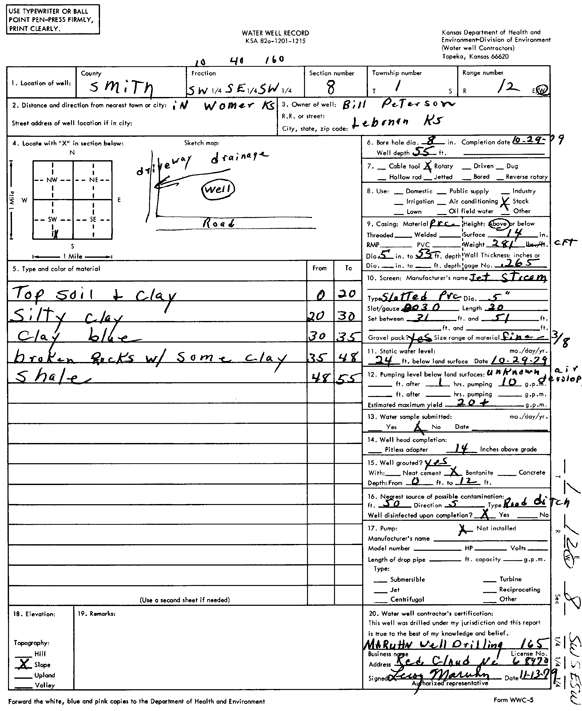 USE TYPEWRITER OR BALL
POINT PEN-PRESS FIRMLY,
PRINT CLEARLY.
WATER WELL RECORD
KSA 82a-1201-1215
Kansas Department of Health and
Environment-Division of Environment
(Water well Contractors)
Topeka, Kansas 66620
10 40 160
1. Location of well: County Smith Fraction SW 1/4 SE 1/4 SW 1/4 Section number 8 Township number T 1 S Range number R 12 E W
2. Distance and direction from nearest town or city: in Womer Ks
Street address of well location if in city:
3. Owner of well: Bill Peterson
R.R. or street:
City, state, zip code: Lebanon Ks
4. Locate with "X" in section below:
Sketch map:
N
NW NE
W E
SW SE
S
1 Mile
1 Mile
driveway drainage
Well
Road
6. Bore hole dia. 8 in. Completion date 10-29-79
Well depth 55 ft.
7. Cable tool X Rotary Driven Dug
Hollow rod Jetted Bored Reverse rotary
8. Use: Domestic Public supply Industry
Irrigation Air conditioning X Stock
Lawn Oil field water Other
9. Casing: Material PVC Height: Above or below
Threaded Welded Surface 14 in.
RMP PVC Weight 281 lbs./ft. CFT
Dia. 5 in. to 55 ft. depth Wall Thickness: inches or
Dia. in. to ft. depth gage No. .265
10. Screen: Manufacturer's name Jet Stream
Type Slotted PVC Dia. 5"
Slot/gauze .030 Length 20
Set between 31 ft. and 51 ft.
ft. and ft.
Gravel pack? yes Size range of material fine- 3/8
11. Static water level: mo./day/yr.
24 ft. below land surface Date 10-29-79
12. Pumping level below land surfaces: unknown air develop
ft. after 1 hrs. pumping 10 g.p.m.
ft. after hrs. pumping g.p.m.
Estimated maximum yield 20+ g.p.m.
13. Water sample submitted: mo./day/yr.
Yes X No Date
14. Well head completion:
Pitless adapter 14 Inches above grade
15. Well grouted? yes
With: Neat cement X Bentonite Concrete
Depth: From 0 ft. to 12 ft.
16. Nearest source of possible contamination:
ft. 50 Direction S Type Road ditch
Well disinfected upon completion? X Yes No
17. Pump: X Not installed
Manufacturer's name
Model number HP Volts
Length of drop pipe ft. capacity g.p.m.
Type:
Submersible Turbine
Jet Reciprocating
Centrifugal Other
5. Type and color of material From To
Top soil + clay 0 20
Silty clay 20 30
Clay blue 30 35
broken Rocks w/ some clay 35 48
Shale 48 55
(Use a second sheet if needed)
18. Elevation:
Topography:
Hill
X Slope
Upland
Valley
19. Remarks:
20. Water well contractor's certification:
This well was drilled under my jurisdiction and this report
is true to the best of my knowledge and belief.
Maruhn Well Drilling 165
Business name License No.
Address Red Cloud Ne 68970
Signed Leroy Maruhn Date 11-13-79
Authorized representative
T 1 R 12 W Sec 8 1/4 1/4 1/4 SW SE SW
Forward the white, blue and pink copies to the Department of Health and Environment
Form WWC-5